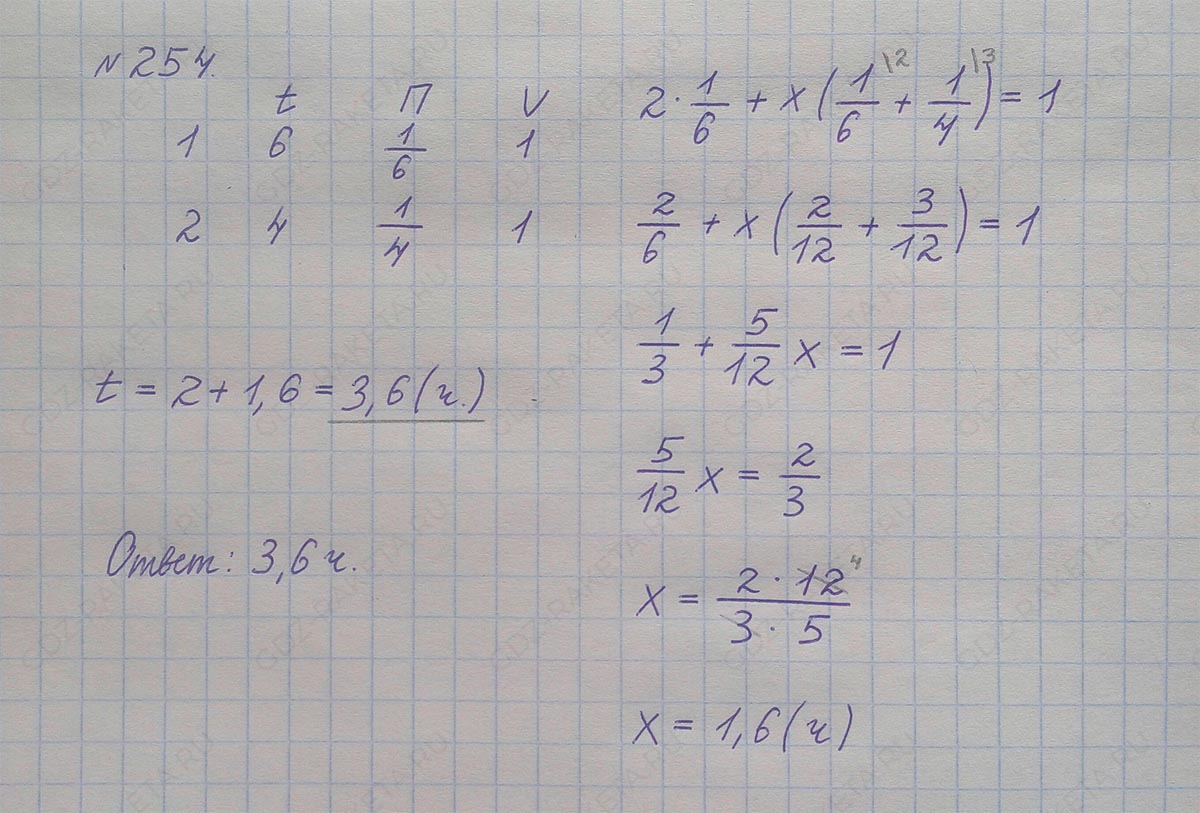 №254.
t П V
1 6 1/6 1
2 4 1/4 1
t = 2 + 1,6 = 3,6 (ч.)
Ответ: 3,6 ч.
2 · 1/6 + x (1/6 \2 + 1/4 \3) = 1
2/6 + x (2/12 + 3/12) = 1
1/3 + 5/12 x = 1
5/12 x = 2/3
x = 2 · 12 4 / 3 · 5
x = 1,6 (ч)
GDZ-RAKETA.RU